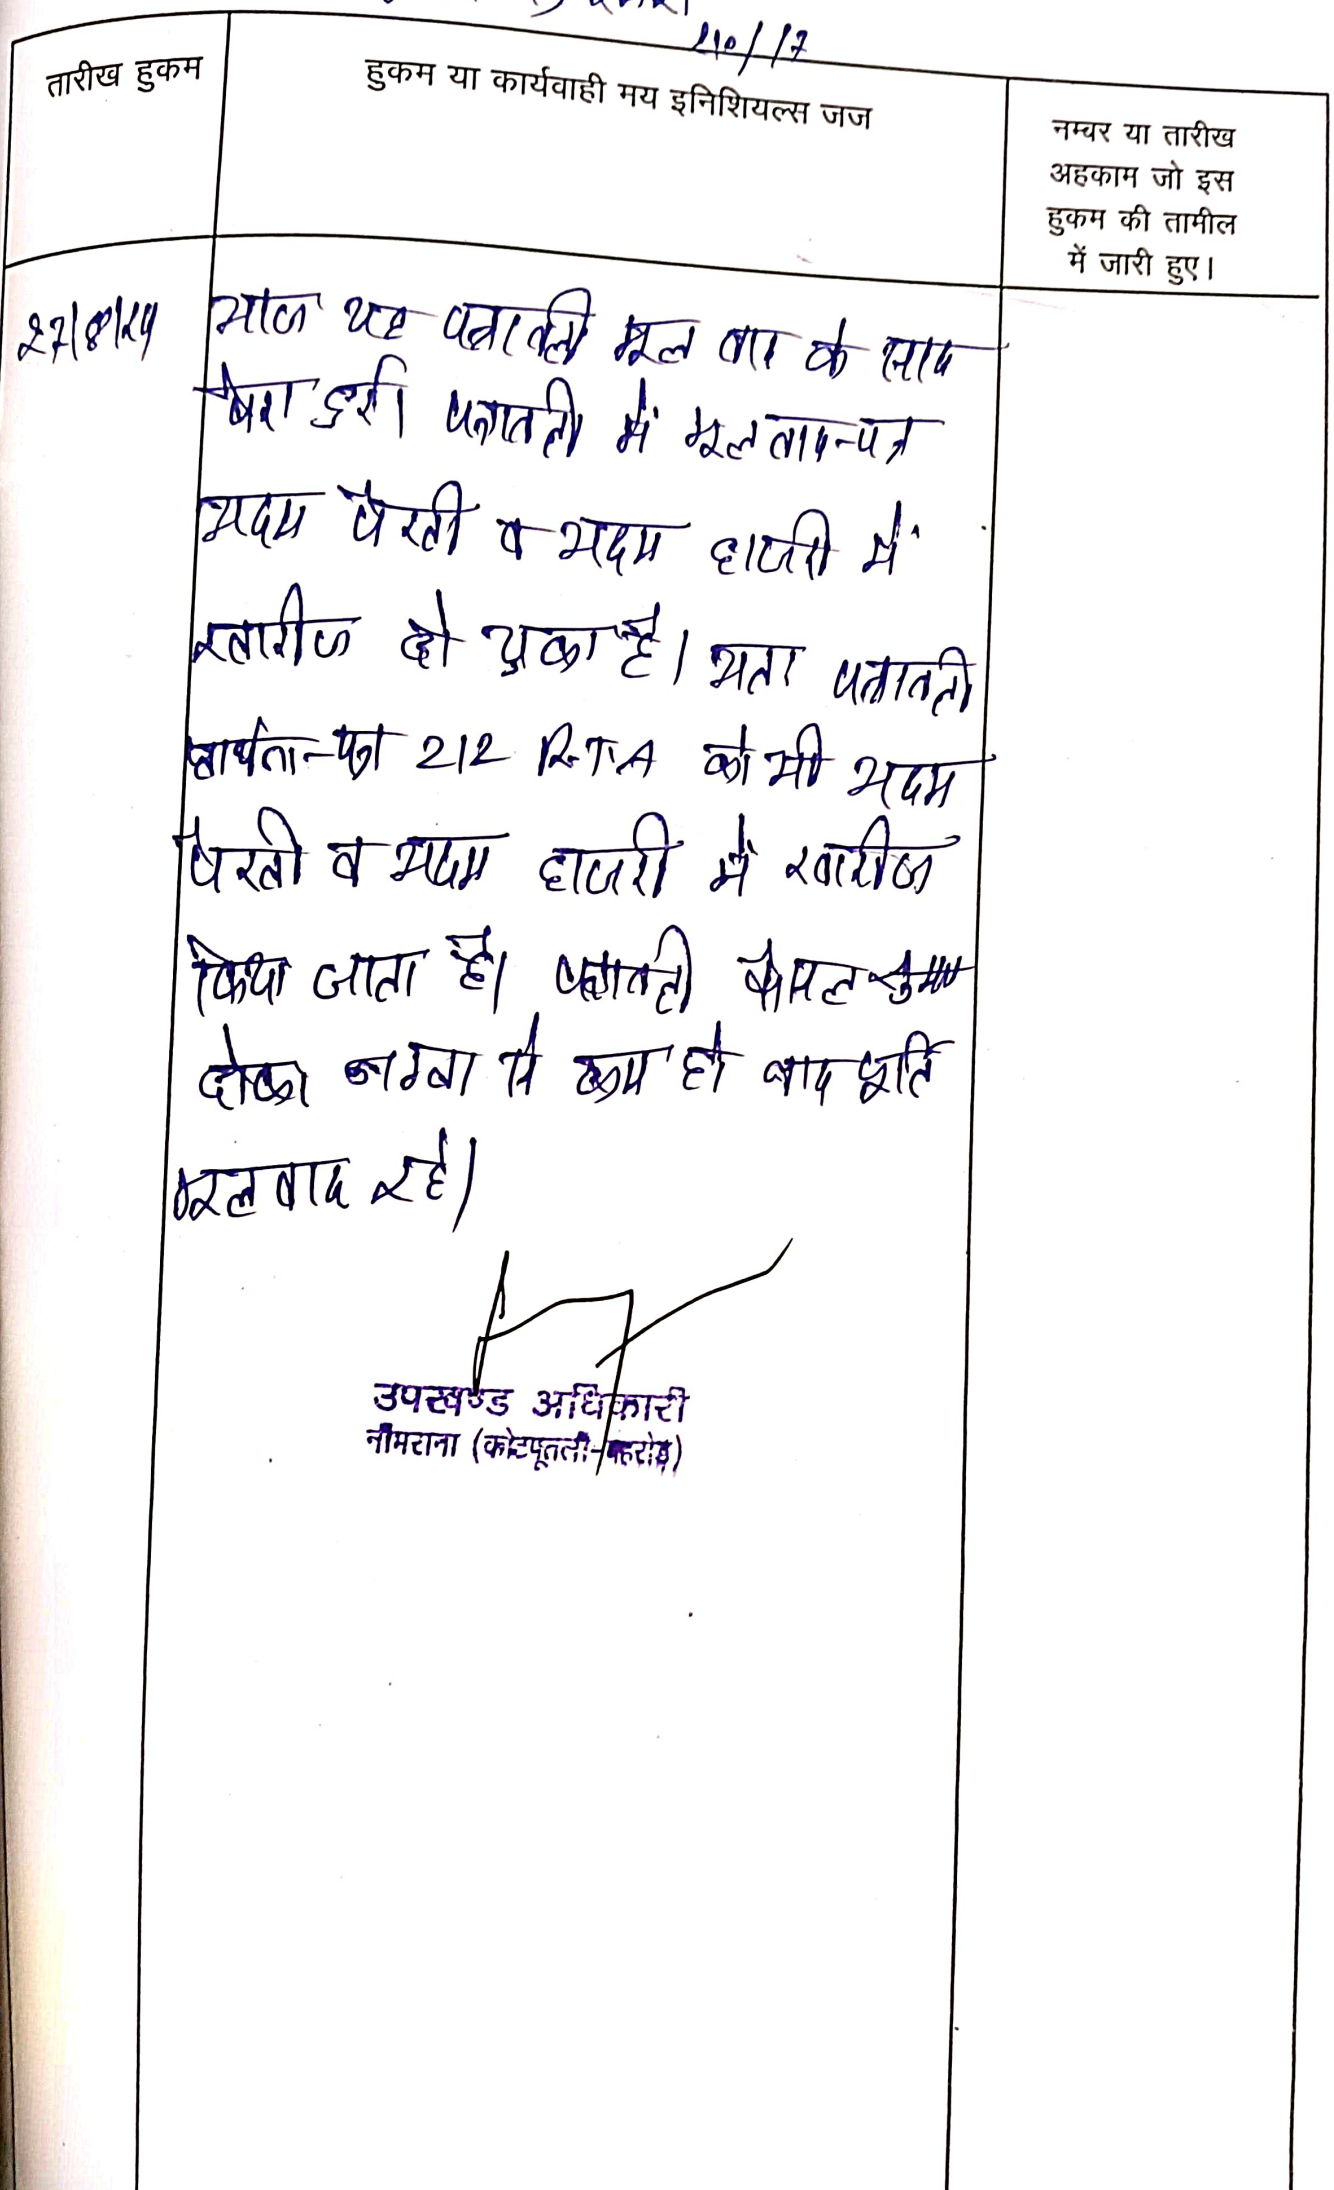 210/17
तारीख हुकम
हुकम या कार्यवाही मय इनिशियल्स जज
नम्बर या तारीख
अहकाम जो इस
हुकम की तामील
में जारी हुए।
27/8/24
आज यह पत्रावली मूल वाद के साथ
पेश हुई। पत्रावली में मूल वाद-पत्र
अदम पैरवी व अदम हाजरी में
खारीज हो चुका है। अतः पत्रावली
प्रार्थना-पत्र 212 R.T.A को भी अदम
पैरवी व अदम हाजरी में खारीज
किया जाता है। पत्रावली फैसल शुमार
होकर नम्बर से कम हो बाद पूर्ति
मूल वाद रहे।
उपखण्ड अधिकारी
नीमराना (कोटपूतली-बहरोड़)